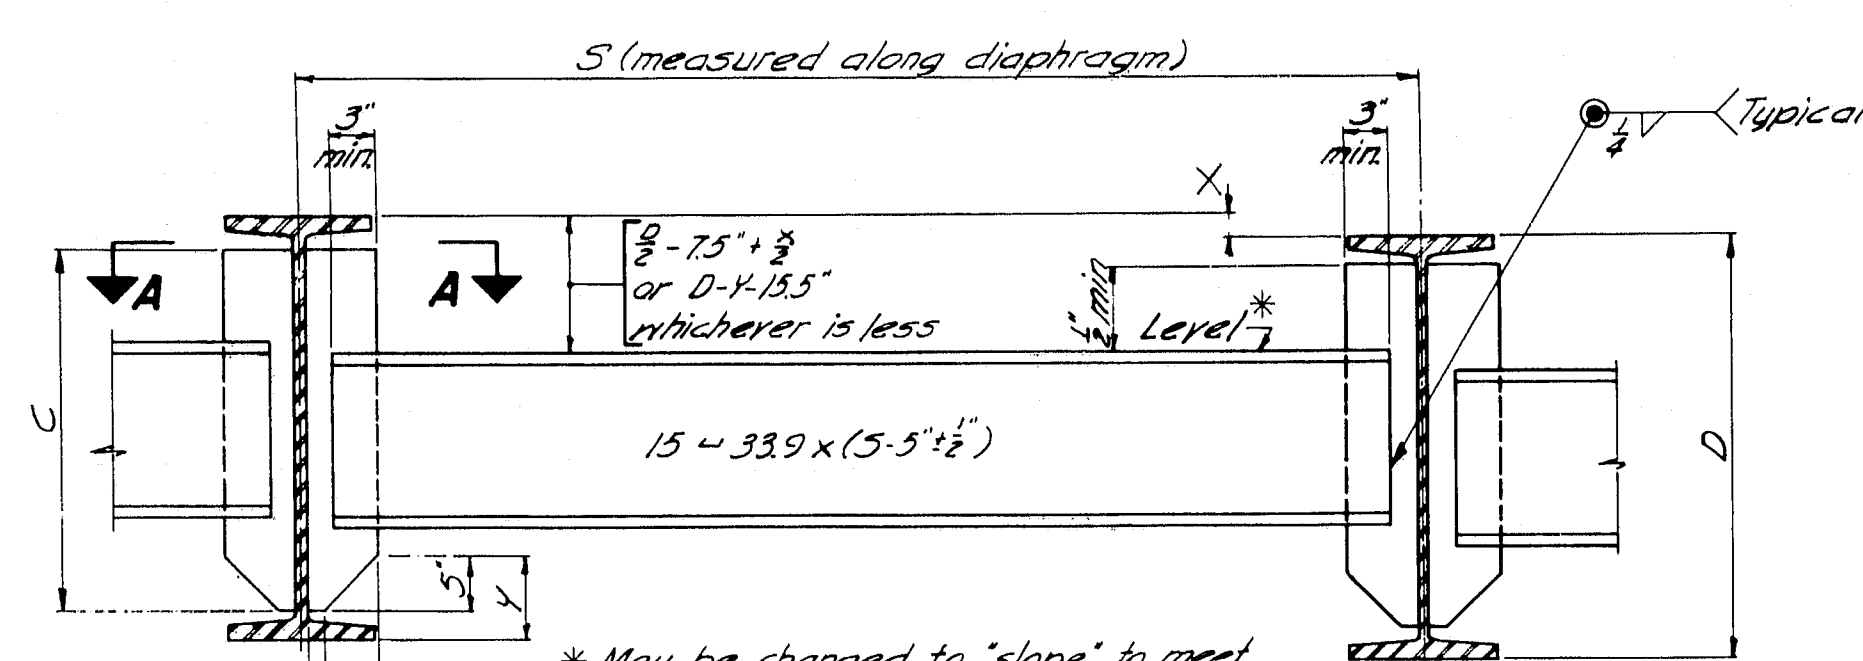 S (measured along diaphragm)
3" min.
3" min.
1/4
Typical
X
D/2 - 7.5" + x/2
or D-Y-15.5"
whichever is less
1/2" min
Level *
A
A
C
15 ⊔ 33.9 x (S-5" ± 1/2")
D
5"
Y
* May be changed to "slope" to meet